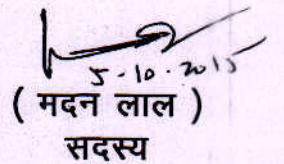 5-10-2015
( मदन लाल )
सदस्य